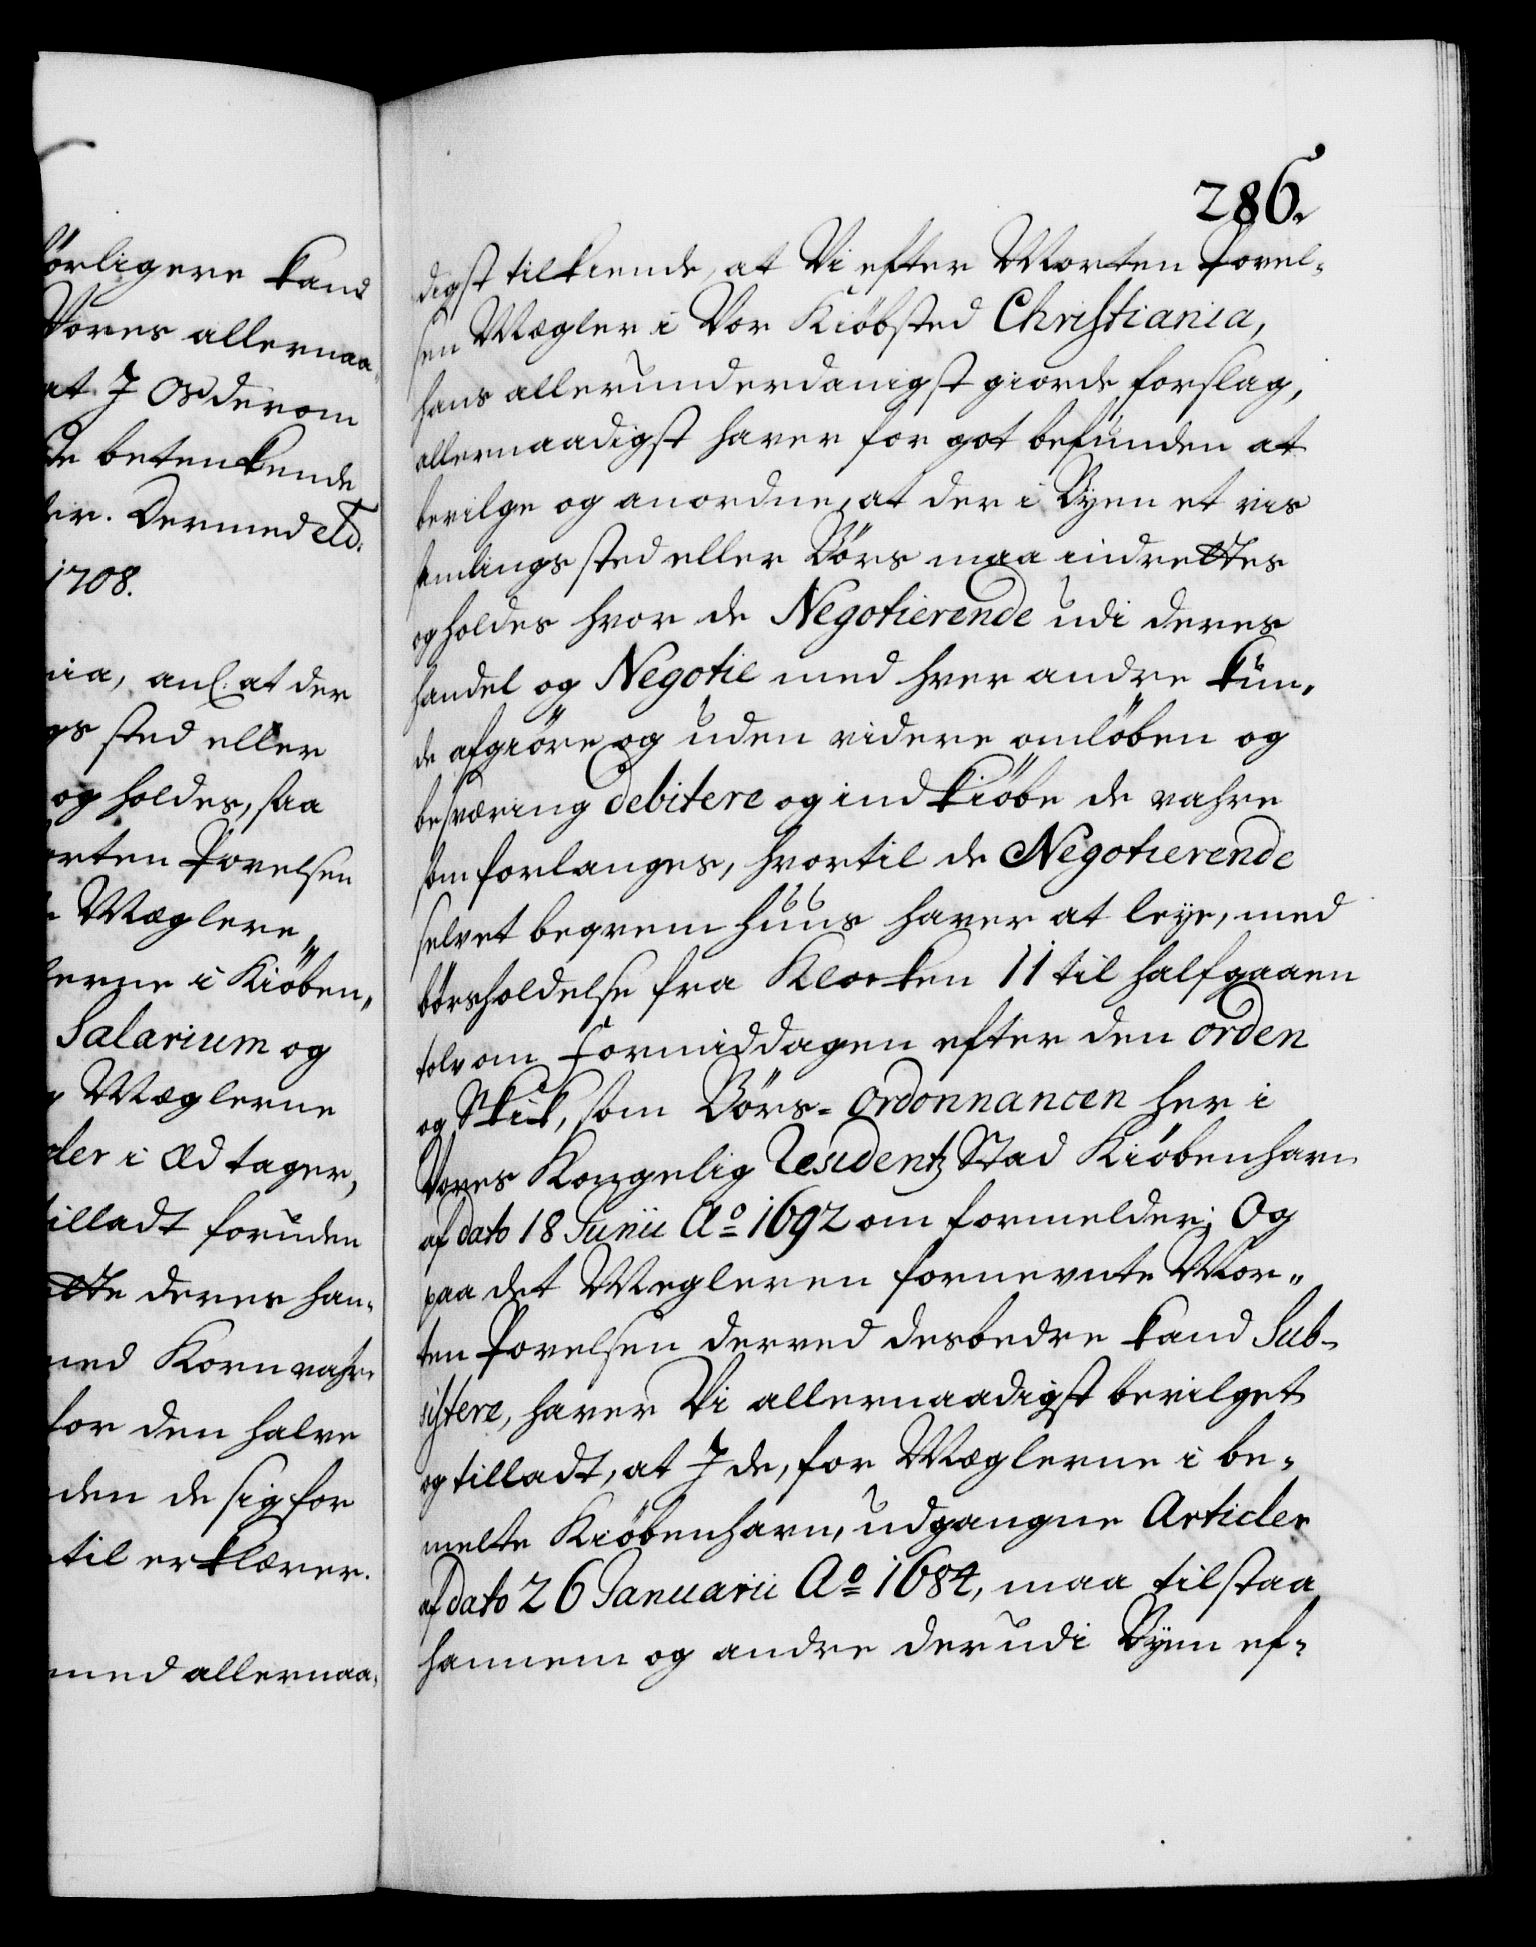 örligere kand
Vores allernaa-
at I Os derom
de betenkende
ler. Dermed etc.
1708.
nia, anl: at der
gs sted eller
og holdes, saa
orten Povelsen
Mæglere,
lerne i Kiöben-
Salarium og
Mæglerne
der i Æd tager,
tilladt foruden
ette deres han-
med Kornvahre
for den halve
den de sig for
til erklærer.
med allernaa-
286.
digst tilkiende, at Vi efter Morten Povel-
sen Mægler i Vor Kiöbsted Christiania,
hans allerunderdanigst giorde forslag,
allernaadigst haver for got befunden at
bevilge og anordne, at der i Byen et vis
samlings sted eller Börs maa indrettes
og holdes hvor de Negotierende udi deres
handel og Negotie med hver andre kun-
de afgiöre og uden videre omlöben og
besværing debitere og indkiöbe de vahre
som forlanges, hvortil de Negotierende
selv et beqvem huus haver at leye, med
börsholdelse fra Klocken 11 til halfgaaen
tolv om Formiddagen efter den orden
og Skik, som Börs-Ordonnancen her i
Vores Kongelig Residentz Stad Kiöbenhavn
af dato 18 Junii Ao 1692 om formelder; Og
paa det Megleren fornevnte Mor-
ten Povelsen derved desbedre kand Sub-
sistere, haver Vi allernaadigst bevilget
og tilladt, at I de, for Mæglerne i be-
melte Kiöbenhavn, udgangne Articler
af dato 26 Januarii Ao 1684, maa tilstaa
hannem og andre der udi Byen ef-